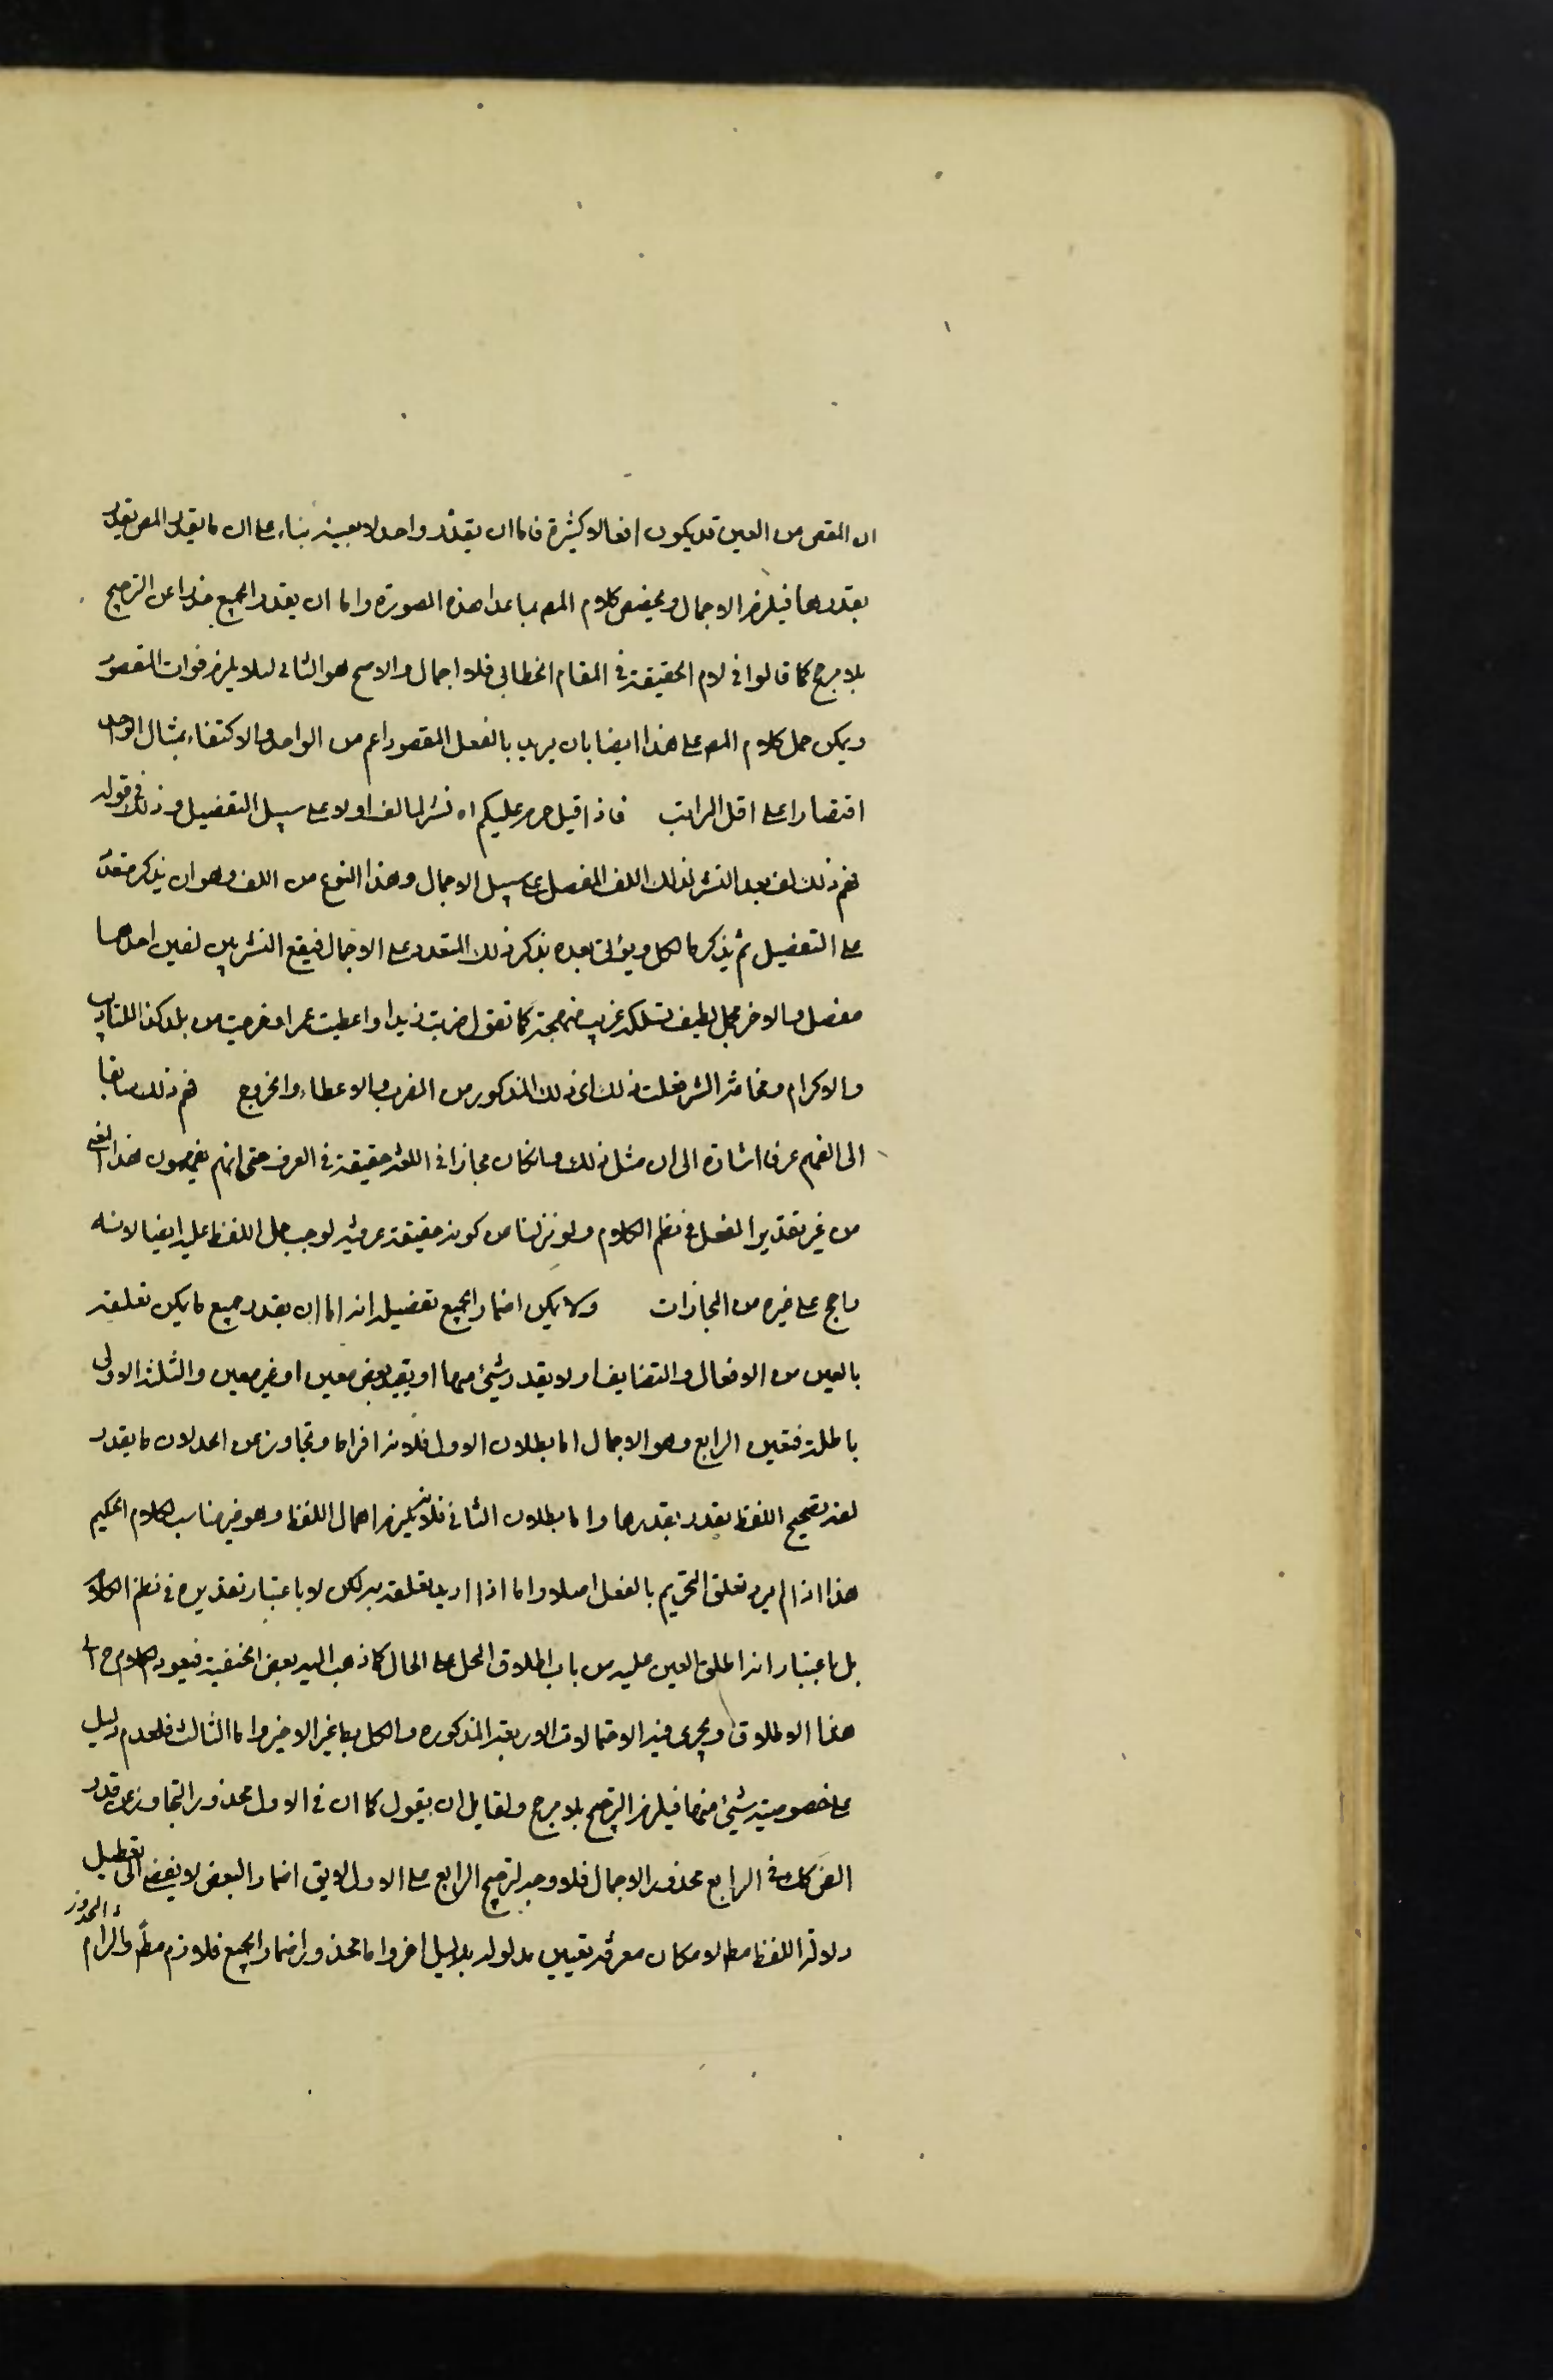 ان المقص من العين قد يكون افعالا كثيرة فاما ان يقدر واحد لا بعينه بناء على ان ما يقدر المص يقدر
بقدرها فيلزم الاجمال ويخصص كلام المص بما عدا هذه الصورة واما ان يقدر الجميع حذرا عن الترجيح
بلا مرجح كما قالوا في لام الحقيقة في المقام الخطابي فلا اجمال والاصح هو الثاني لئلا يلزم فوات المقصود
ويمكن حمل كلام المص على هذا ايضا بان يريد بالفعل المقصود اعم من الواحد والاكتفاء بمثال الواحد
اقتصارا على اقل المراتب فاذا قيل حرم عليكم اه نشر لما لف اولا على سبيل التفصيل وذلك في قوله
فهم ذلك لف بعد النشر لذلك اللف المفصل على سبيل الاجمال وهذا النوع من اللف وهو ان يذكر متعدد
على التفصيل ثم يذكر ما لكل ويؤتى بعده بذكر ذلك المتعدد على الاجمال فيقع النشر بين لفين احدهما
مفصل والاخر مجمل لطيف مسلكه كما تقول ضربت زيدا واعطيت عمرا وخرجت من بلد كذا للتاديب
والاكرام ومخافة الشر فعلت ذلك اي ذلك المذكور من الضرب والاعطاء والخروج فهم ذلك سابقا
الى الفهم عرفا اشارة الى ان مثل ذلك وان كان مجازا في اللغة حقيقة في العرف حتى انهم يفهمون هذا
من غير تقدير الفعل في نظم الكلام ولو نزلنا من كونه حقيقة عرفية لوجب حمل اللفظ عليه ايضا لانه
راجح على غيره من المجازات ولا يمكن اضمار الجميع تفصيله انه اما ان يقدر جميع ما يمكن تعلقه
بالعين من الافعال والتضايف او لا يقدر شيئ منها او يقدر بعض معين او غير معين والثلثة الاولى
باطلة فتعين الرابع وهو الاجمال اما بطلان الاول فلانه افراط وتجاوز عن الحد لان ما يقدر
لضرورة تصحيح اللفظ يقدر بقدرها واما بطلان الثاني فلانه يلزم اهمال اللفظ وهو غير مناسب لكلام الحكيم
هذا اذا لم يرد تعلق التحريم بالفعل اصلا واما اذا اريد تعلقه به لكن لا باعتبار تقديره في نظم الكلام
بل باعتبار انه اطلق العين عليه من باب اطلاق المحل على الحال كما ذهب اليه بعض الحنفية فيعود الكلام ح الى
هذا الاطلاق ويجري فيه الاحتمالات الاربعة المذكورة والكل باطل غير الاخير واما الثالث فلعدم دليل
على خصوصية شيئ منها فيلزم الترجيح بلا مرجح ولقايل ان يقول كما ان في الاول محذور التجاوز عن قدر
الضر كك في الرابع محذور الاجمال فلا وجه لترجيح الرابع على الاول لا يق اضمار البعض لا يفضي الى تعطيل
دلالة اللفظ مط لامكان معرفة تعيين مدلوله بدليل اخر واما محذور اضمار الجميع فلازم مط والتزام المحذور